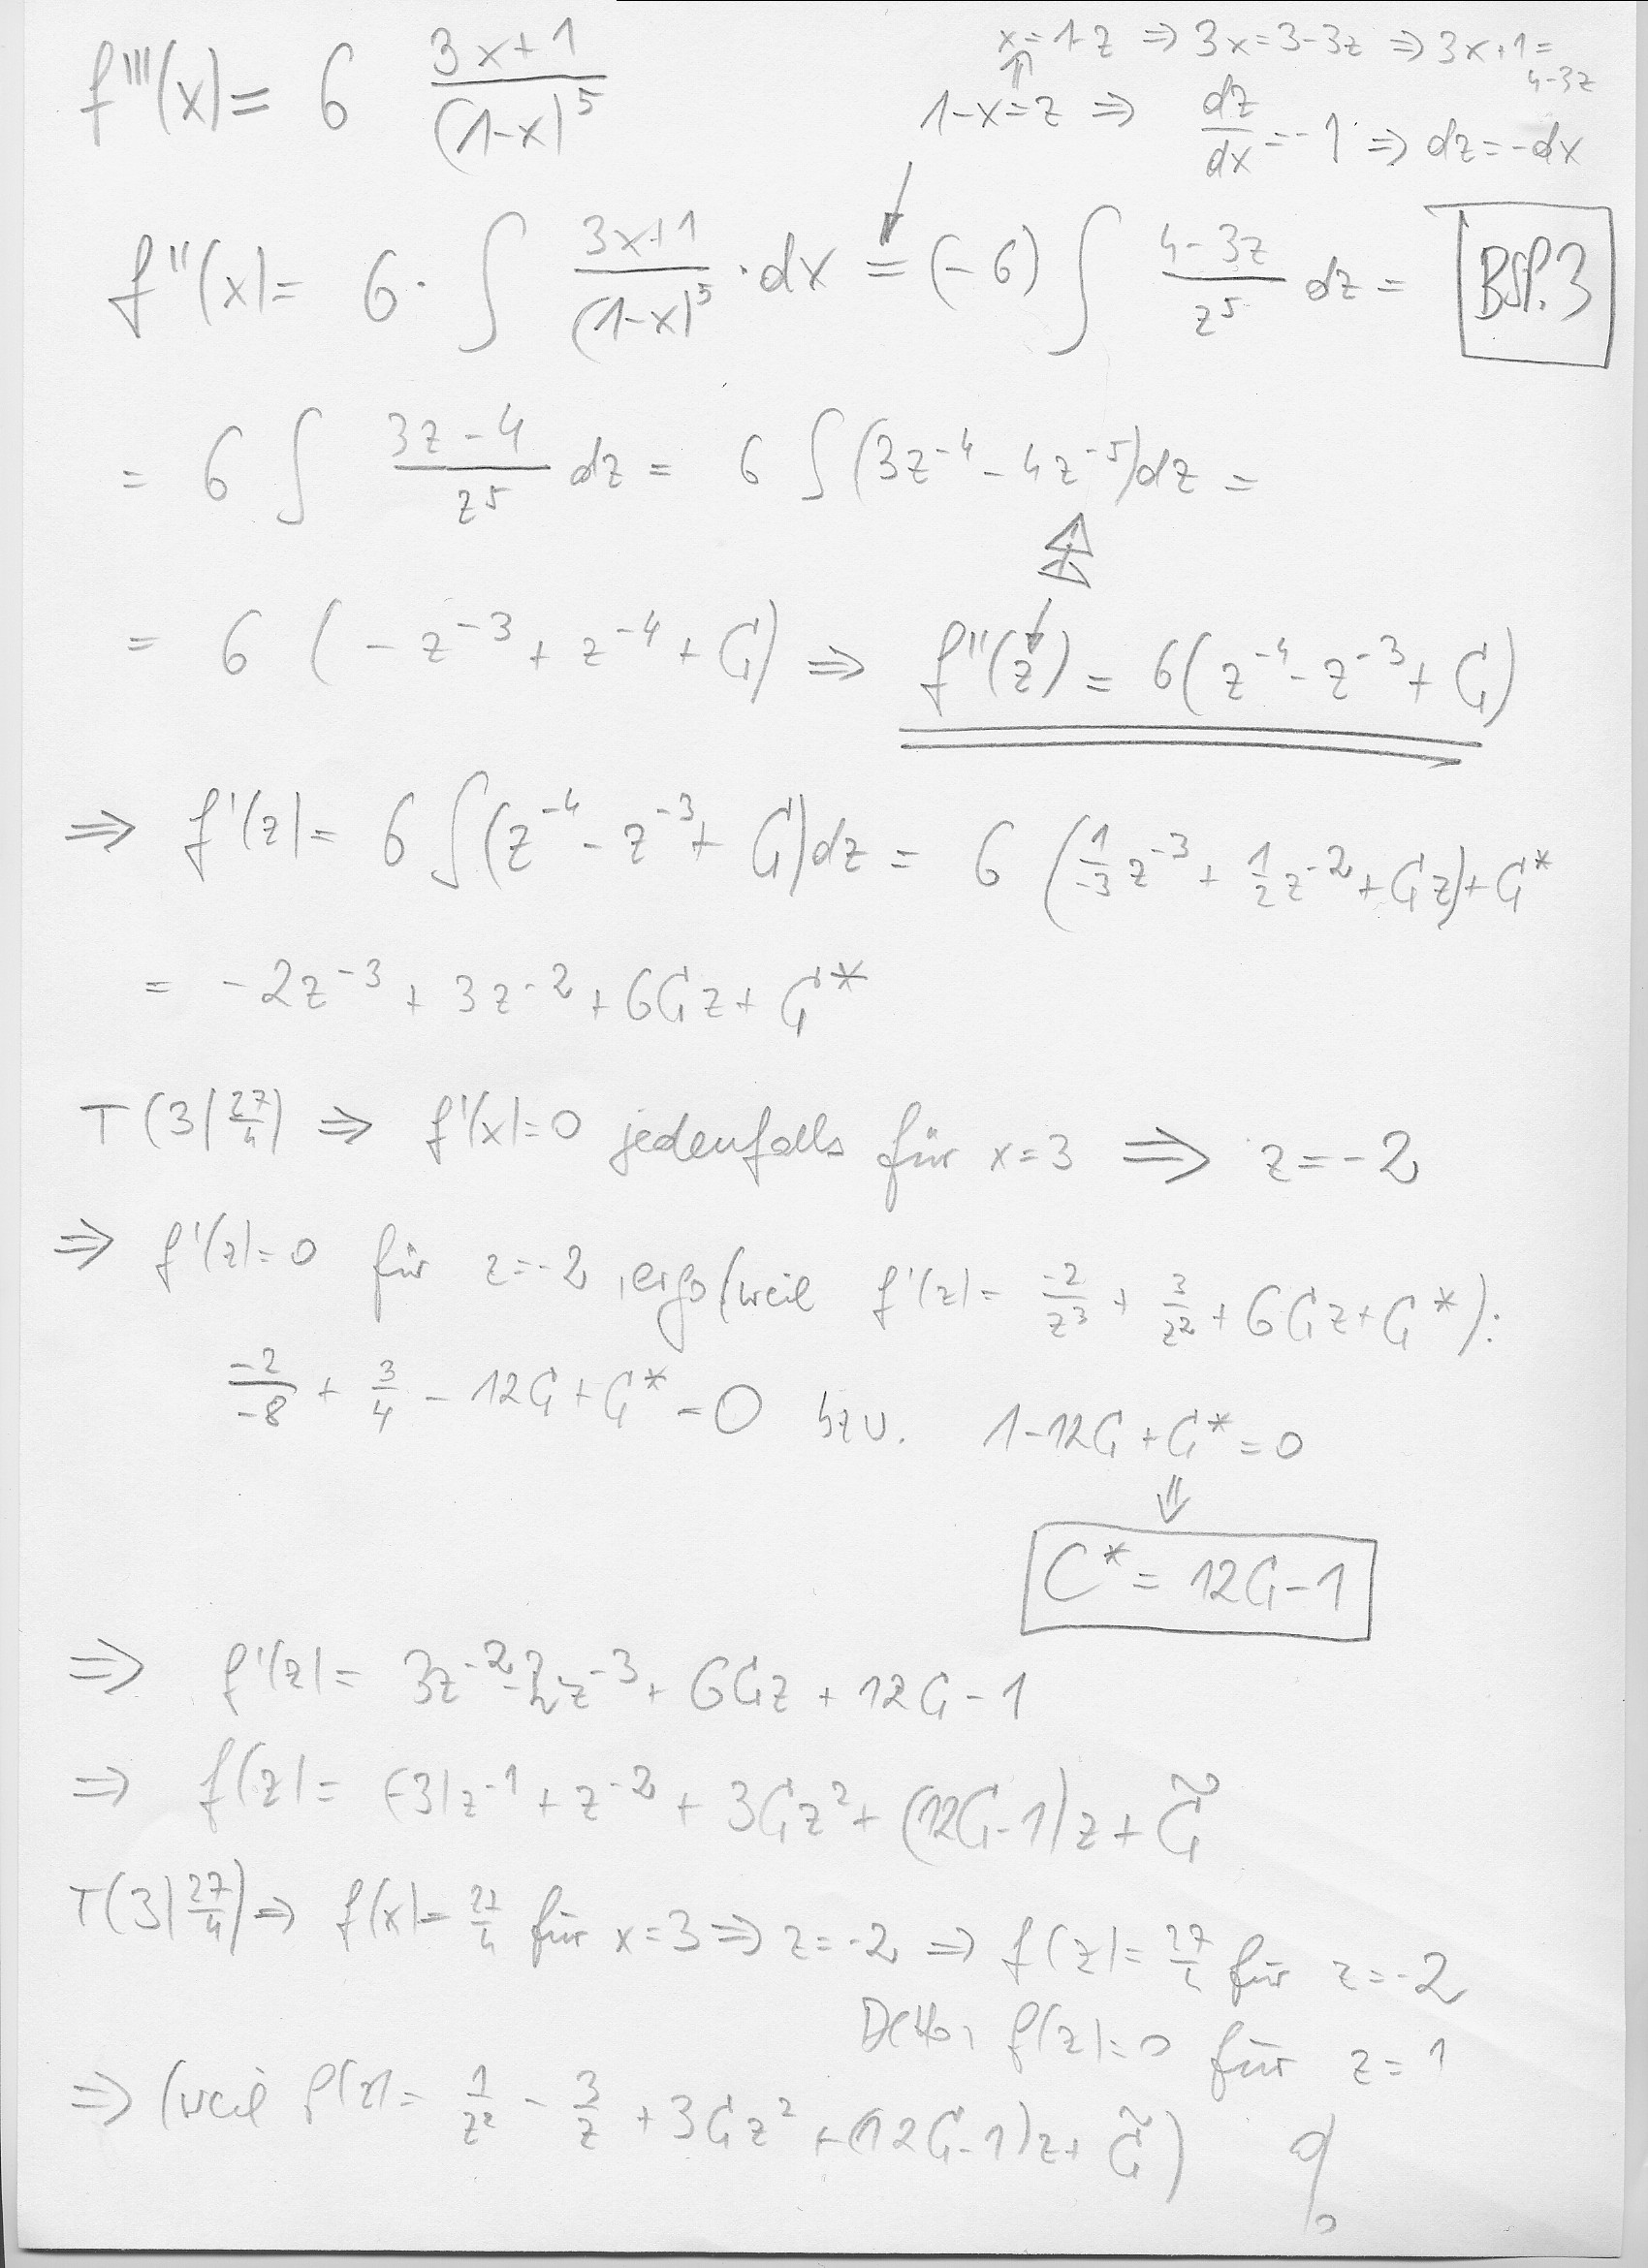 f'''(x) = 6 (3x+1)/(1-x)^5
x = 1-z ⇒ 3x = 3-3z ⇒ 3x+1 = 4-3z
⇑
1-x = z ⇒ dz/dx = -1 ⇒ dz = -dx
f''(x) = 6 · ∫ (3x+1)/(1-x)^5 · dx = (-6) ∫ (4-3z)/z^5 dz =
BSP. 3
= 6 ∫ (3z-4)/z^5 dz = 6 ∫ (3z^-4 - 4z^-5) dz =
= 6 (-z^-3 + z^-4 + C) ⇒ f''(z) = 6(z^-4 - z^-3 + C)
⇒ f'(z) = 6 ∫ (z^-4 - z^-3 + C) dz = 6 (1/-3 z^-3 + 1/2 z^-2 + Cz) + C*
= -2z^-3 + 3z^-2 + 6Cz + C*
T(3|27/4) ⇒ f'(x) = 0 jedenfalls für x = 3 ⇒ z = -2
⇒ f'(z) = 0 für z = -2, ergo (weil f'(z) = -2/z^3 + 3/z^2 + 6Cz + C*):
-2/-8 + 3/4 - 12C + C* = 0 bzw. 1 - 12C + C* = 0
⇓
C* = 12C - 1
⇒ f'(z) = 3z^-2 - 2z^-3 + 6Cz + 12C - 1
⇒ f(z) = (-3)z^-1 + z^-2 + 3Cz^2 + (12C-1)z + C̃
T(3|27/4) ⇒ f(x) = 27/4 für x = 3 ⇒ z = -2 ⇒ f(z) = 27/4 für z = -2
Detto, f(z) = 0 für z = 1
⇒ (weil f(z) = 1/z^2 - 3/z + 3Cz^2 + (12C-1)z + C̃)